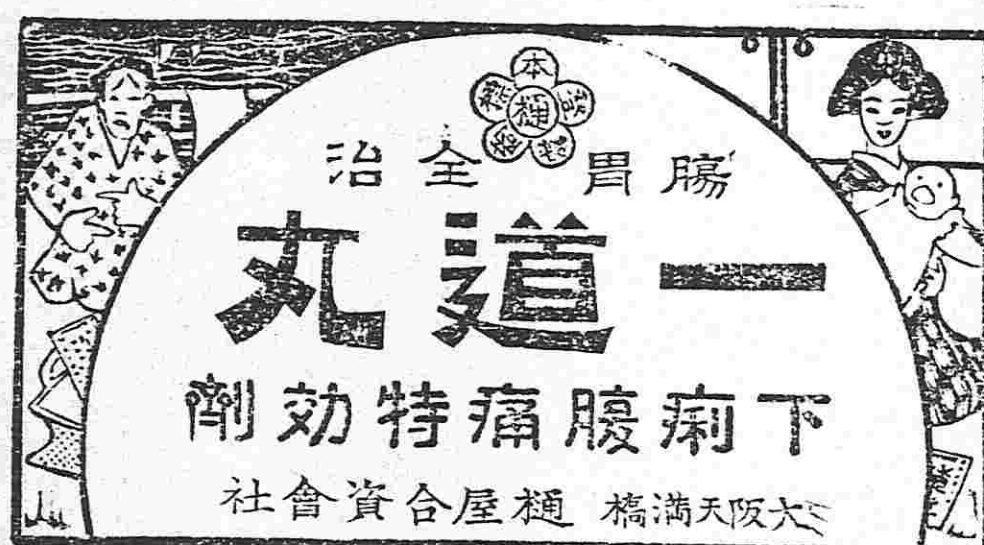 本
樋
腸胃全治
一道丸
下痢腹痛特効剤
大阪天満橋 樋屋合資會社